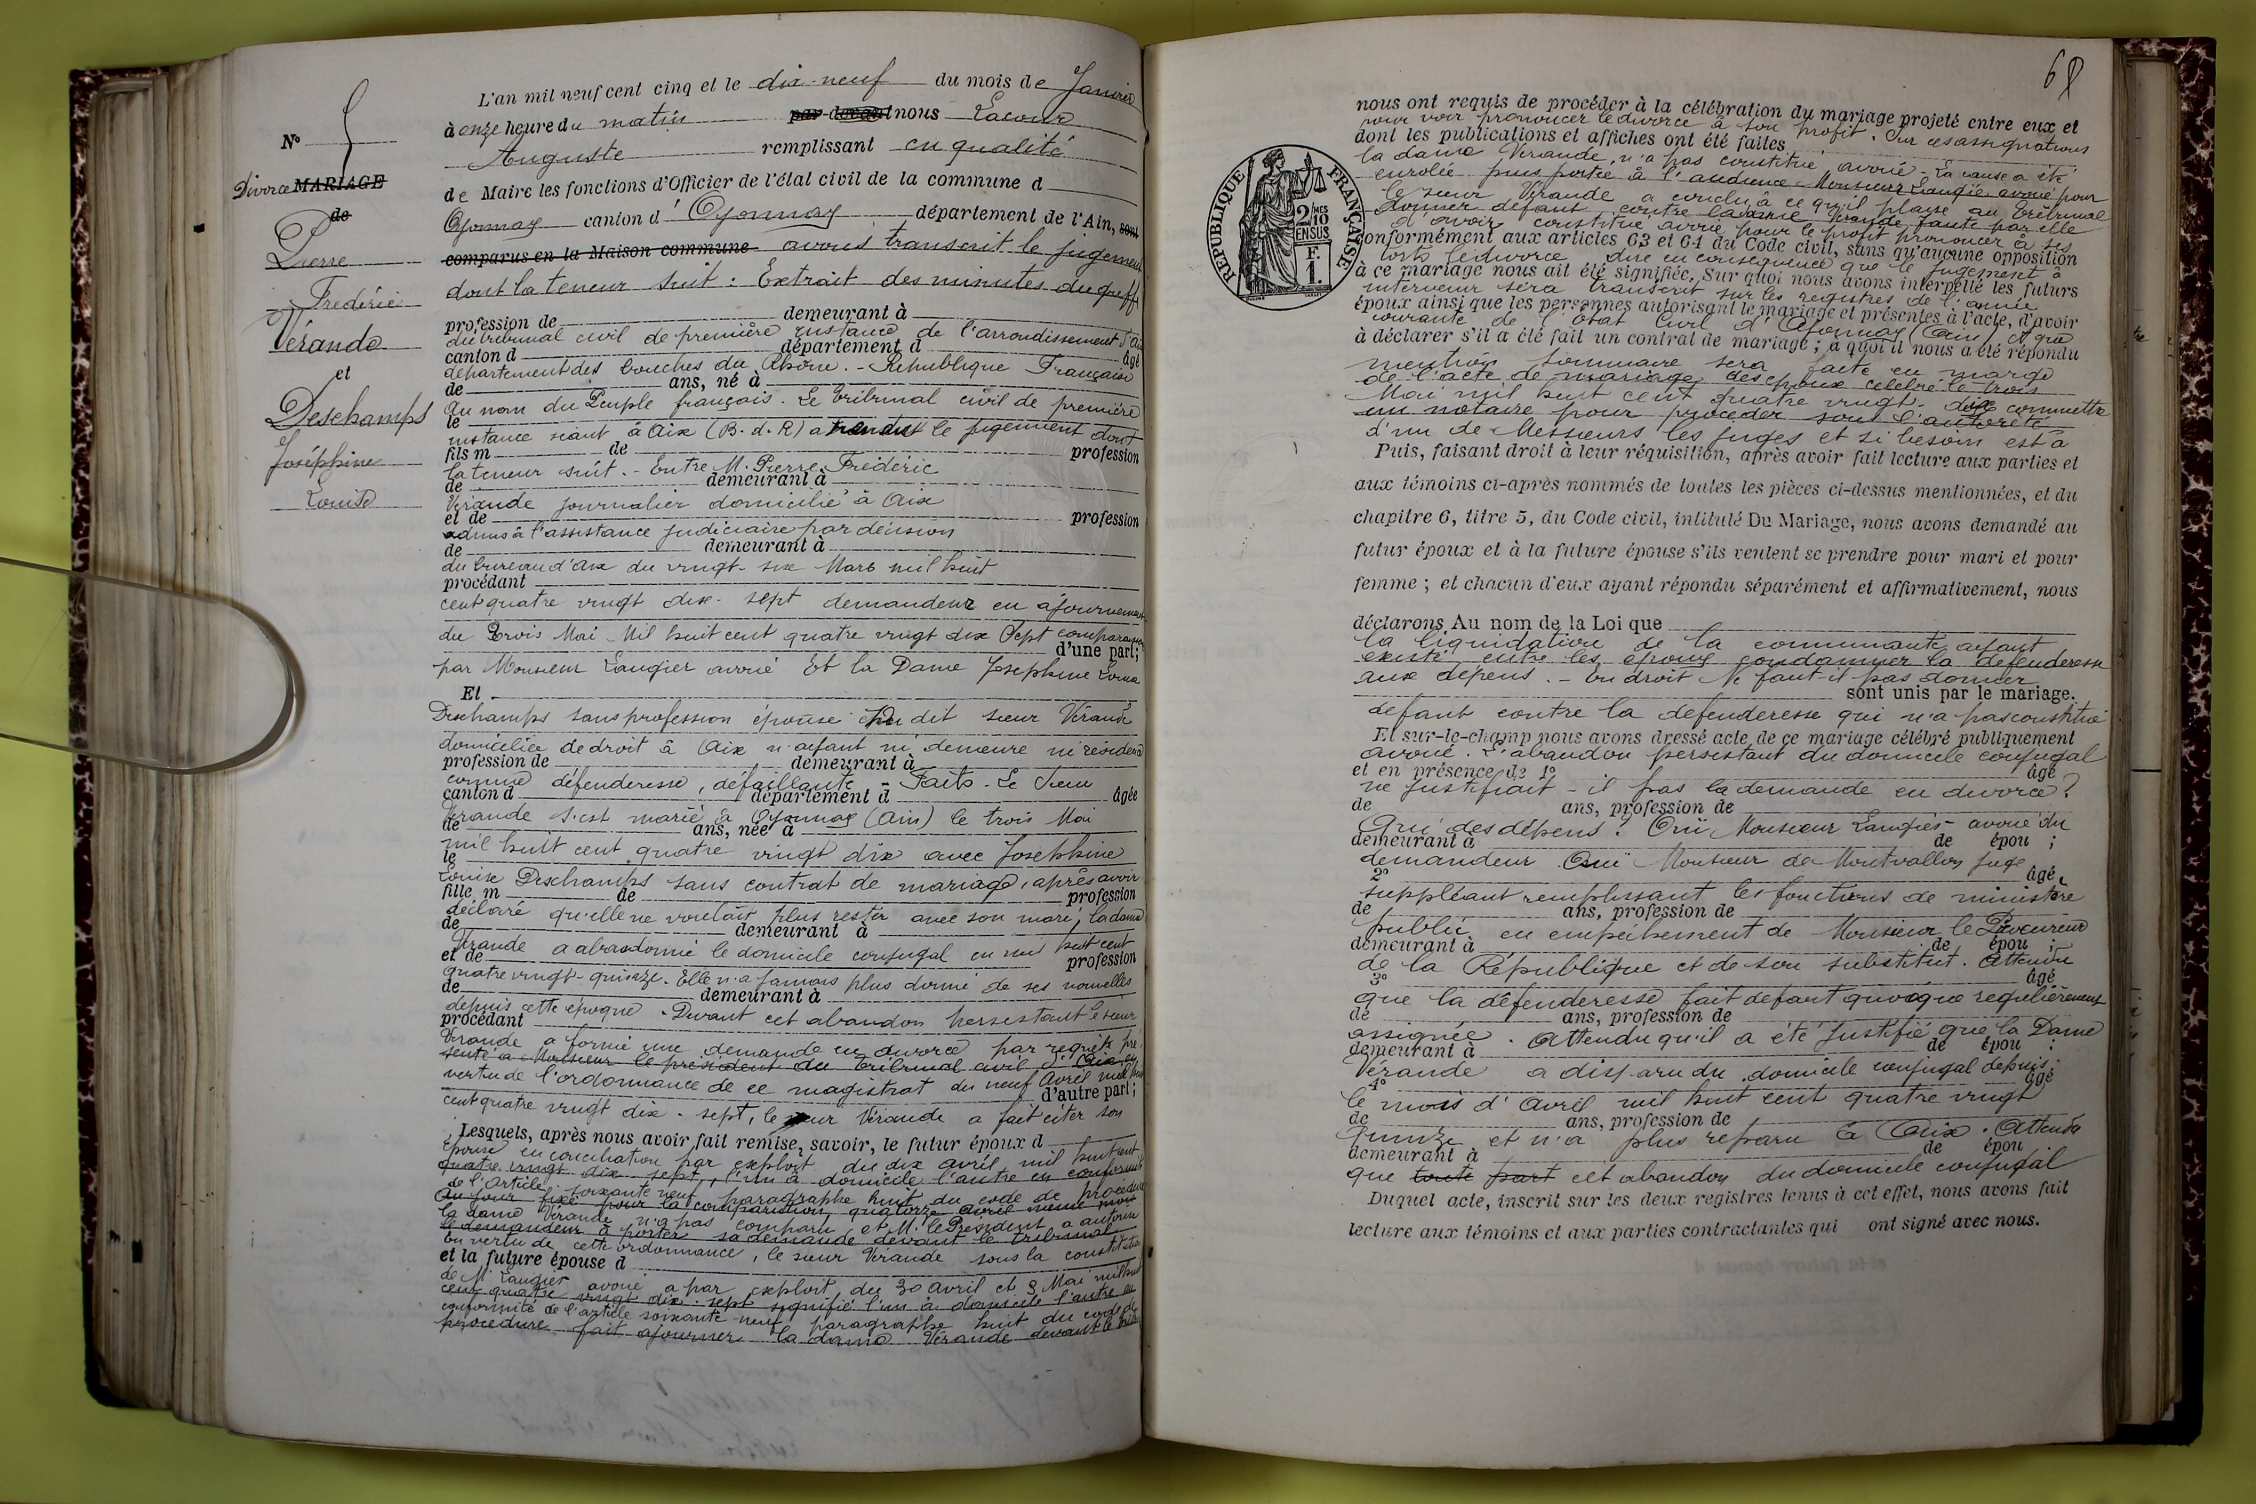 L'an mil neuf cent cinq et le dix-neuf du mois de Janvier
à onze heure du matin par devant nous Lacour
Auguste remplissant en qualité
de Maire les fonctions d'Officier de l'état civil de la commune d
Oyonnax canton d' Oyonnax département de l'Ain, sont
comparus en la Maison commune avons transcrit le jugement
dont la teneur suit : Extrait des minutes du greffe
profession de demeurant à
du tribunal civil de première instance de l'arrondissement d'Aix
canton d département d âgé
département des bouches du Rhône. - République Française
de ans, né à
Au nom du Peuple français. Le tribunal civil de première
le
instance séant à Aix (B. d. R) a rendu le jugement dont
fils m de profession
la teneur suit. - Entre M. Pierre Frédéric
de demeurant à
Vérande journalier domicilié à Aix
et de profession
admis à l'assistance judiciaire par décision
de demeurant à
du bureau d'Aix du vingt-six Mars mil huit
procédant
cent quatre vingt dix-sept demandeur en ajournement
du trois Mai Mil huit cent quatre vingt dix Sept comparaissant
d'une part;
par Monsieur Laugier avoué Et la Dame Josephine Louise
Et
Deschamps sans profession épouse du dit sieur Vérande
domiciliée de droit à Aix n'ayant ni demeure ni résidence
profession de demeurant à
comme défenderesse, défaillante - Faits - Le Sieur
canton d département d âgée
Vérande s'est marié à Oyonnax (Ain) le trois Mai
de ans, née à
mil huit cent quatre vingt dix avec Josephine
le
Louise Deschamps sans contrat de mariage, après avoir
fille m de profession
déclaré qu'elle ne voulait plus rester avec son mari, la dame
de demeurant à
Vérande a abandonné le domicile conjugal en mil huit cent
et de profession
quatre vingt-quinze. Elle n'a jamais plus donné de ses nouvelles
de demeurant à
depuis cette époque. Devant cet abandon persistant le sieur
procédant
Vérande a formé une demande en divorce par requête pré
senté à Monsieur le président du Tribunal civil d'Aix en
vertu de l'ordonnance de ce magistrat du neuf Avril mil huit
d'autre part;
cent quatre vingt dix-sept, le sieur Vérande a fait citer son
Lesquels, après nous avoir fait remise, savoir, le futur époux d
épouse en conciliation par exploit du dix avril mil huit cent
quatre vingt dix sept, l'un à domicile l'autre en conformité
de l'Article soixante neuf paragraphe huit du code de procédure
Au jour fixé pour la comparution quatorze avril même mois
la dame Vérande n'a pas comparu et M. le Président a autorisé
le demandeur à porter sa demande devant le tribunal
En vertu de cette ordonnance, le sieur Vérande sous la constitution
et la future épouse d
de M. Laugier avoué a par exploit du 30 avril et 3 Mai mil huit
cent quatre vingt dix-sept signifié l'un à domicile l'autre en
conformité de l'article soixante neuf paragraphe huit du code de
procédure fait ajourner la dame Vérande devant le tribunal
N° 5
Divorce MARIAGE
de
Pierre
Frédéric
Vérande
et
Deschamps
Joséphine
Louise
68
nous ont requis de procéder à la célébration du mariage projeté entre eux et
pour voir prononcer le divorce à son profit. Sur ces assignations
dont les publications et affiches ont été faites
la dame Vérande n'a pas constitué avoué. La cause a été
enrolée puis portée à l'audience Monsieur Laugier avoué pour
le sieur Vérande a conclu à ce qu'il plaise au Tribunal
donner défaut contre la dame Vérande faute par elle
d'avoir constitué avoué pour le profit prononcer à ses
conformément aux articles 63 et 64 du Code civil, sans qu'aucune opposition
torts le divorce dire en conséquence que le jugement à
à ce mariage nous ait été signifiée. Sur quoi nous avons interpellé les futurs
intervenir sera transcrit sur les registres de l'année
époux ainsi que les personnes autorisant le mariage et présentes à l'acte, d'avoir
courante de l'Etat Civil d'Oyonnax (Ain) et que
à déclarer s'il a été fait un contrat de mariage ; à quoi il nous a été répondu
mention sommaire sera faite en marge
de l'acte de mariage des époux célébré le trois
Mai mil huit cent quatre vingt-dix commettre
un notaire pour procéder sous l'autorité
d'un de Messieurs les juges et si besoin est à
Puis, faisant droit à leur réquisition, après avoir fait lecture aux parties et
aux témoins ci-après nommés de toutes les pièces ci-dessus mentionnées, et du
chapitre 6, titre 5, du Code civil, intitulé Du Mariage, nous avons demandé au
futur époux et à la future épouse s'ils veulent se prendre pour mari et pour
femme ; et chacun d'eux ayant répondu séparément et affirmativement, nous
déclarons Au nom de la Loi que
la liquidation de la communauté ayant
existé entre les époux condamner la défenderesse
aux dépens. - En droit Ne faut-il pas donner
sont unis par le mariage.
défaut contre la défenderesse qui n'a pas constitué
Et sur-le-champ nous avons dressé acte de ce mariage célébré publiquement
avoué. L'abandon persistant du domicile conjugal
et en présence de 1° âgé
ne justifiait-il pas la demande en divorce ?
de ans, profession de
Qui des dépens ? Ouï Monsieur Laugier avoué du
demeurant à de épou ;
demandeur Ouï Monsieur de Montvallon juge
2° âgé
suppléant remplissant les fonctions de ministère
de ans, profession de
public en empêchement de Monsieur le Procureur
demeurant à de épou ;
de la République et de son substitut. Attendu
3° âgé
que la défenderesse fait défaut quoique régulièrement
de ans, profession de
assignée. Attendu qu'il a été justifié que la Dame
demeurant à de épou ;
Vérande a disparu du domicile conjugal depuis
4° âgé
le mois d'Avril mil huit cent quatre vingt
de ans, profession de
quinze et n'a plus reparu à Aix. Attendu
demeurant à de épou
que toute part cet abandon du domicile conjugal
Duquel acte, inscrit sur les deux registres tenus à cet effet, nous avons fait
lecture aux témoins et aux parties contractantes qui ont signé avec nous.
REPUBLIQUE FRANÇAISE
2/10 MES
EN SUS
F.
1.